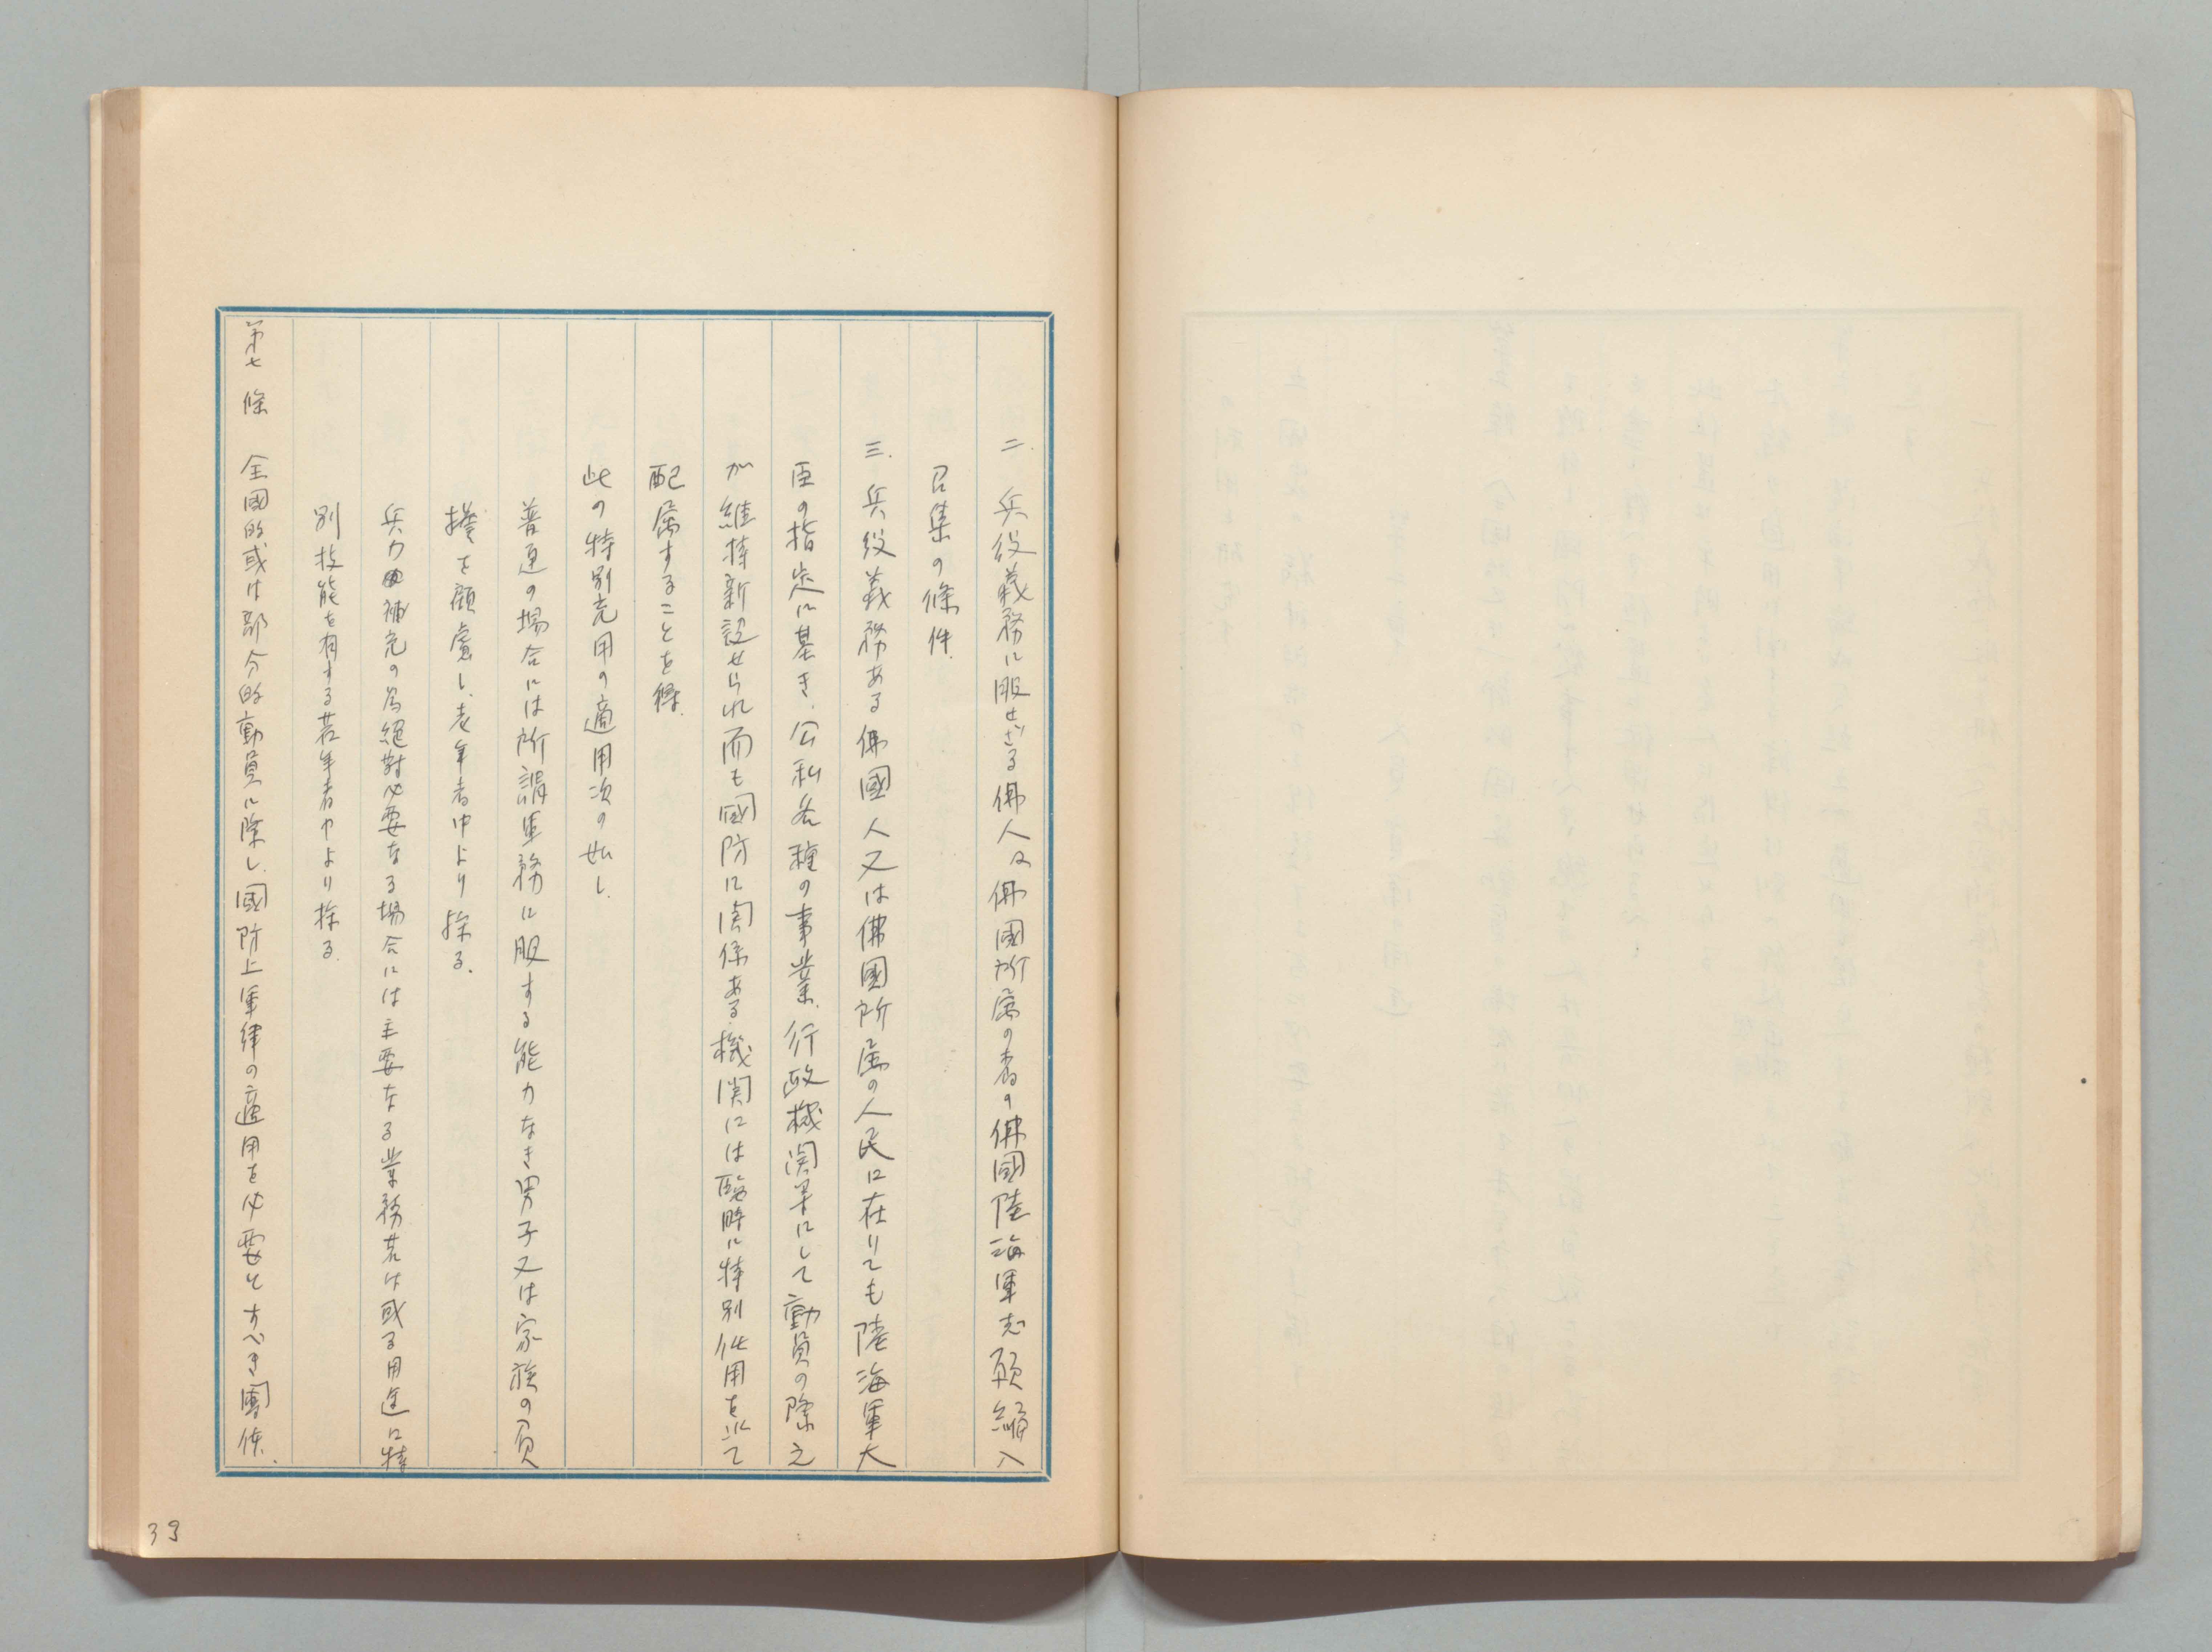 二、兵役義務に服せざる佛人及佛國所属の者の佛國陸海軍志願編入
召集の條件.
三、兵役義務ある佛國人又は佛國所属の人民に在りても陸海軍大
臣の指定に基き、公私各種の事業、行政機関等にして動員の際之
が維持新設せられ而も國防に関係ある機関には臨時に特別任用を以て
配属することを得.
此の特別充用の適用次の如し.
普通の場合には所謂軍務に服する能力なき男子又は家族の負
擔を顧慮し、老年者中より採る.
兵力補充の為絶對必要なる場合には主要なる業務若は或る用途に特
別技能を有する若年者中より採る.
第七條 全國的或は部分的動員に際し、國防上軍律の適用を必要とすべき團体、
33